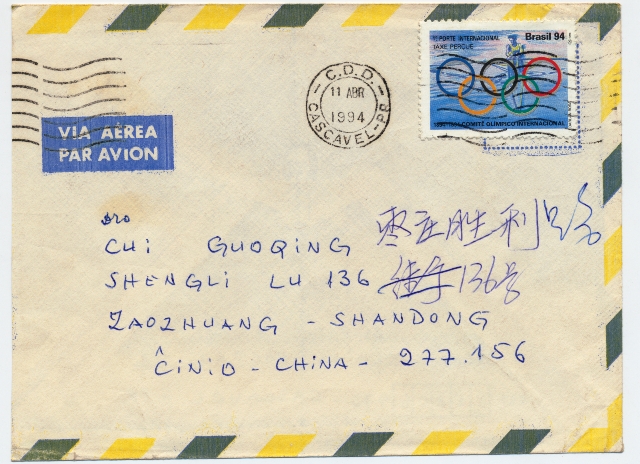 PORTE INTERNACIONAL Brasil 94
TAXE PERÇUE
COMITÊ OLÍMPICO INTERNACIONAL
C.D.D.
11 ABR
1994
CASCAVEL-PR
VIA AÉREA
PAR AVION
CHI GUOQING 枣庄胜利路
SHENGLI LU 136 136号
ZAOZHUANG - SHANDONG
ĈINIO - CHINA - 277.156